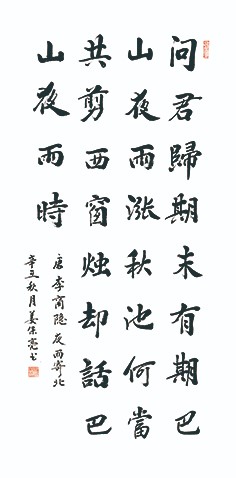 问君歸期未有期巴
山夜雨涨秋池何當
共剪西窗烛却話巴
山夜雨時
唐李商隐夜雨寄北
辛丑秋月姜保亮书